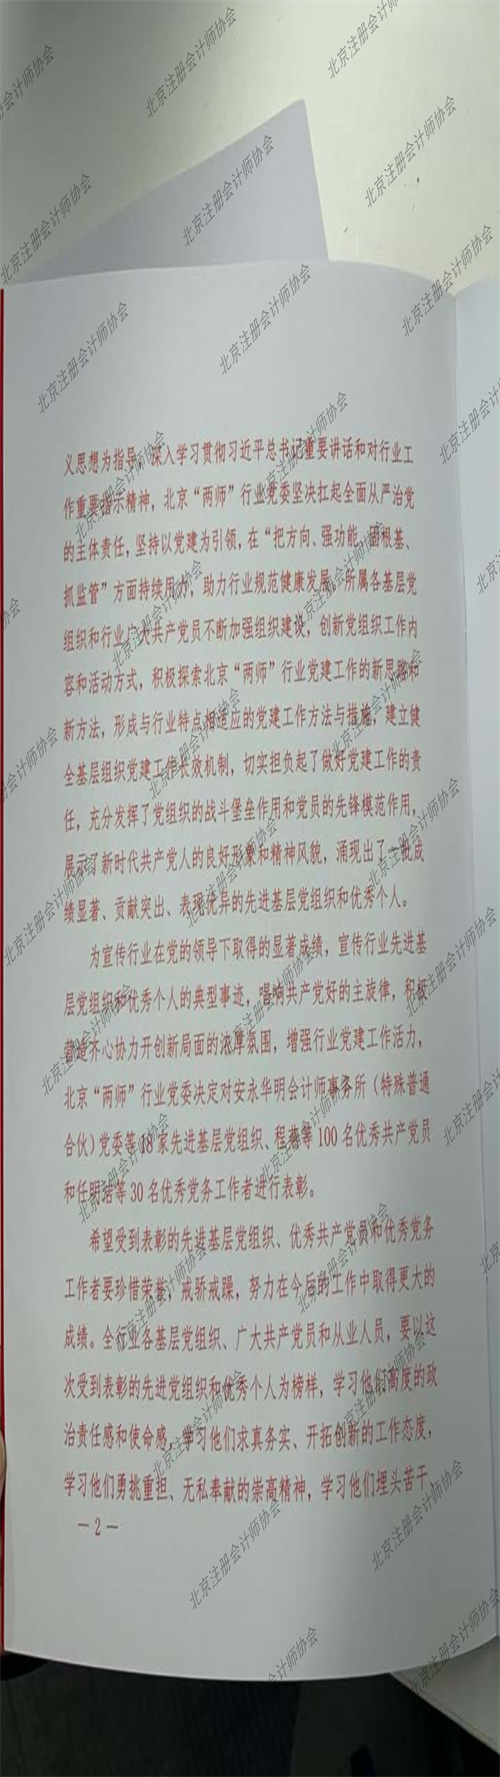 义思想为指导，深入学习贯彻习近平总书记重要讲话和对行业工
作重要指示精神，北京“两师”行业党委坚决扛起全面从严治党
的主体责任，坚持以党建为引领，在“把方向、强功能、固根基、
抓监管”方面持续用力，助力行业规范健康发展。所属各基层党
组织和行业广大共产党员不断加强组织建设，创新党组织工作内
容和活动方式，积极探索北京“两师”行业党建工作的新思路和
新方法，形成与行业特点相适应的党建工作方法与措施，建立健
全基层组织党建工作长效机制，切实担负起了做好党建工作的责
任，充分发挥了党组织的战斗堡垒作用和党员的先锋模范作用，
展示了新时代共产党人的良好形象和精神风貌，涌现出了一批成
绩显著、贡献突出、表现优异的先进基层党组织和优秀个人。
为宣传行业在党的领导下取得的显著成绩，宣传行业先进基
层党组织和优秀个人的典型事迹，唱响共产党好的主旋律，积极
营造齐心协力开创新局面的浓厚氛围，增强行业党建工作活力，
北京“两师”行业党委决定对安永华明会计师事务所（特殊普通
合伙）党委等18家先进基层党组织、程燕等100名优秀共产党员
和任明洁等30名优秀党务工作者进行表彰。
希望受到表彰的先进基层党组织、优秀共产党员和优秀党务
工作者要珍惜荣誉，戒骄戒躁，努力在今后的工作中取得更大的
成绩。全行业各基层党组织、广大共产党员和从业人员，要以这
次受到表彰的先进党组织和优秀个人为榜样，学习他们高度的政
治责任感和使命感，学习他们求真务实、开拓创新的工作态度，
学习他们勇挑重担、无私奉献的崇高精神，学习他们埋头苦干、
—2—
北京注册会计师协会